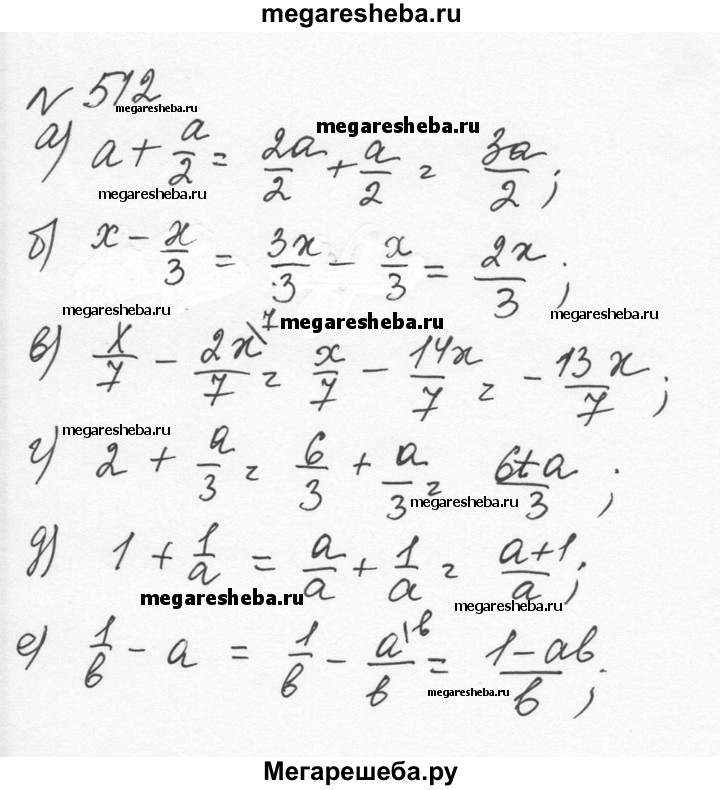 megaresheba.ru
№ 512
megaresheba.ru
а) a + a/2 = 2a/2 + a/2 = 3a/2;
megaresheba.ru
megaresheba.ru
б) x - x/3 = 3x/3 - x/3 = 2x/3;
megaresheba.ru
megaresheba.ru
megaresheba.ru
в) x/7 - 2x\7/7 = x/7 - 14x/7 = -13x/7;
megaresheba.ru
г) 2 + a/3 = 6/3 + a/3 = 6+a/3;
megaresheba.ru
д) 1 + 1/a = a/a + 1/a = a+1/a;
megaresheba.ru
megaresheba.ru
е) 1/b - a = 1/b - a\b/b = 1-ab/b;
megaresheba.ru
Мегарешеба.ру